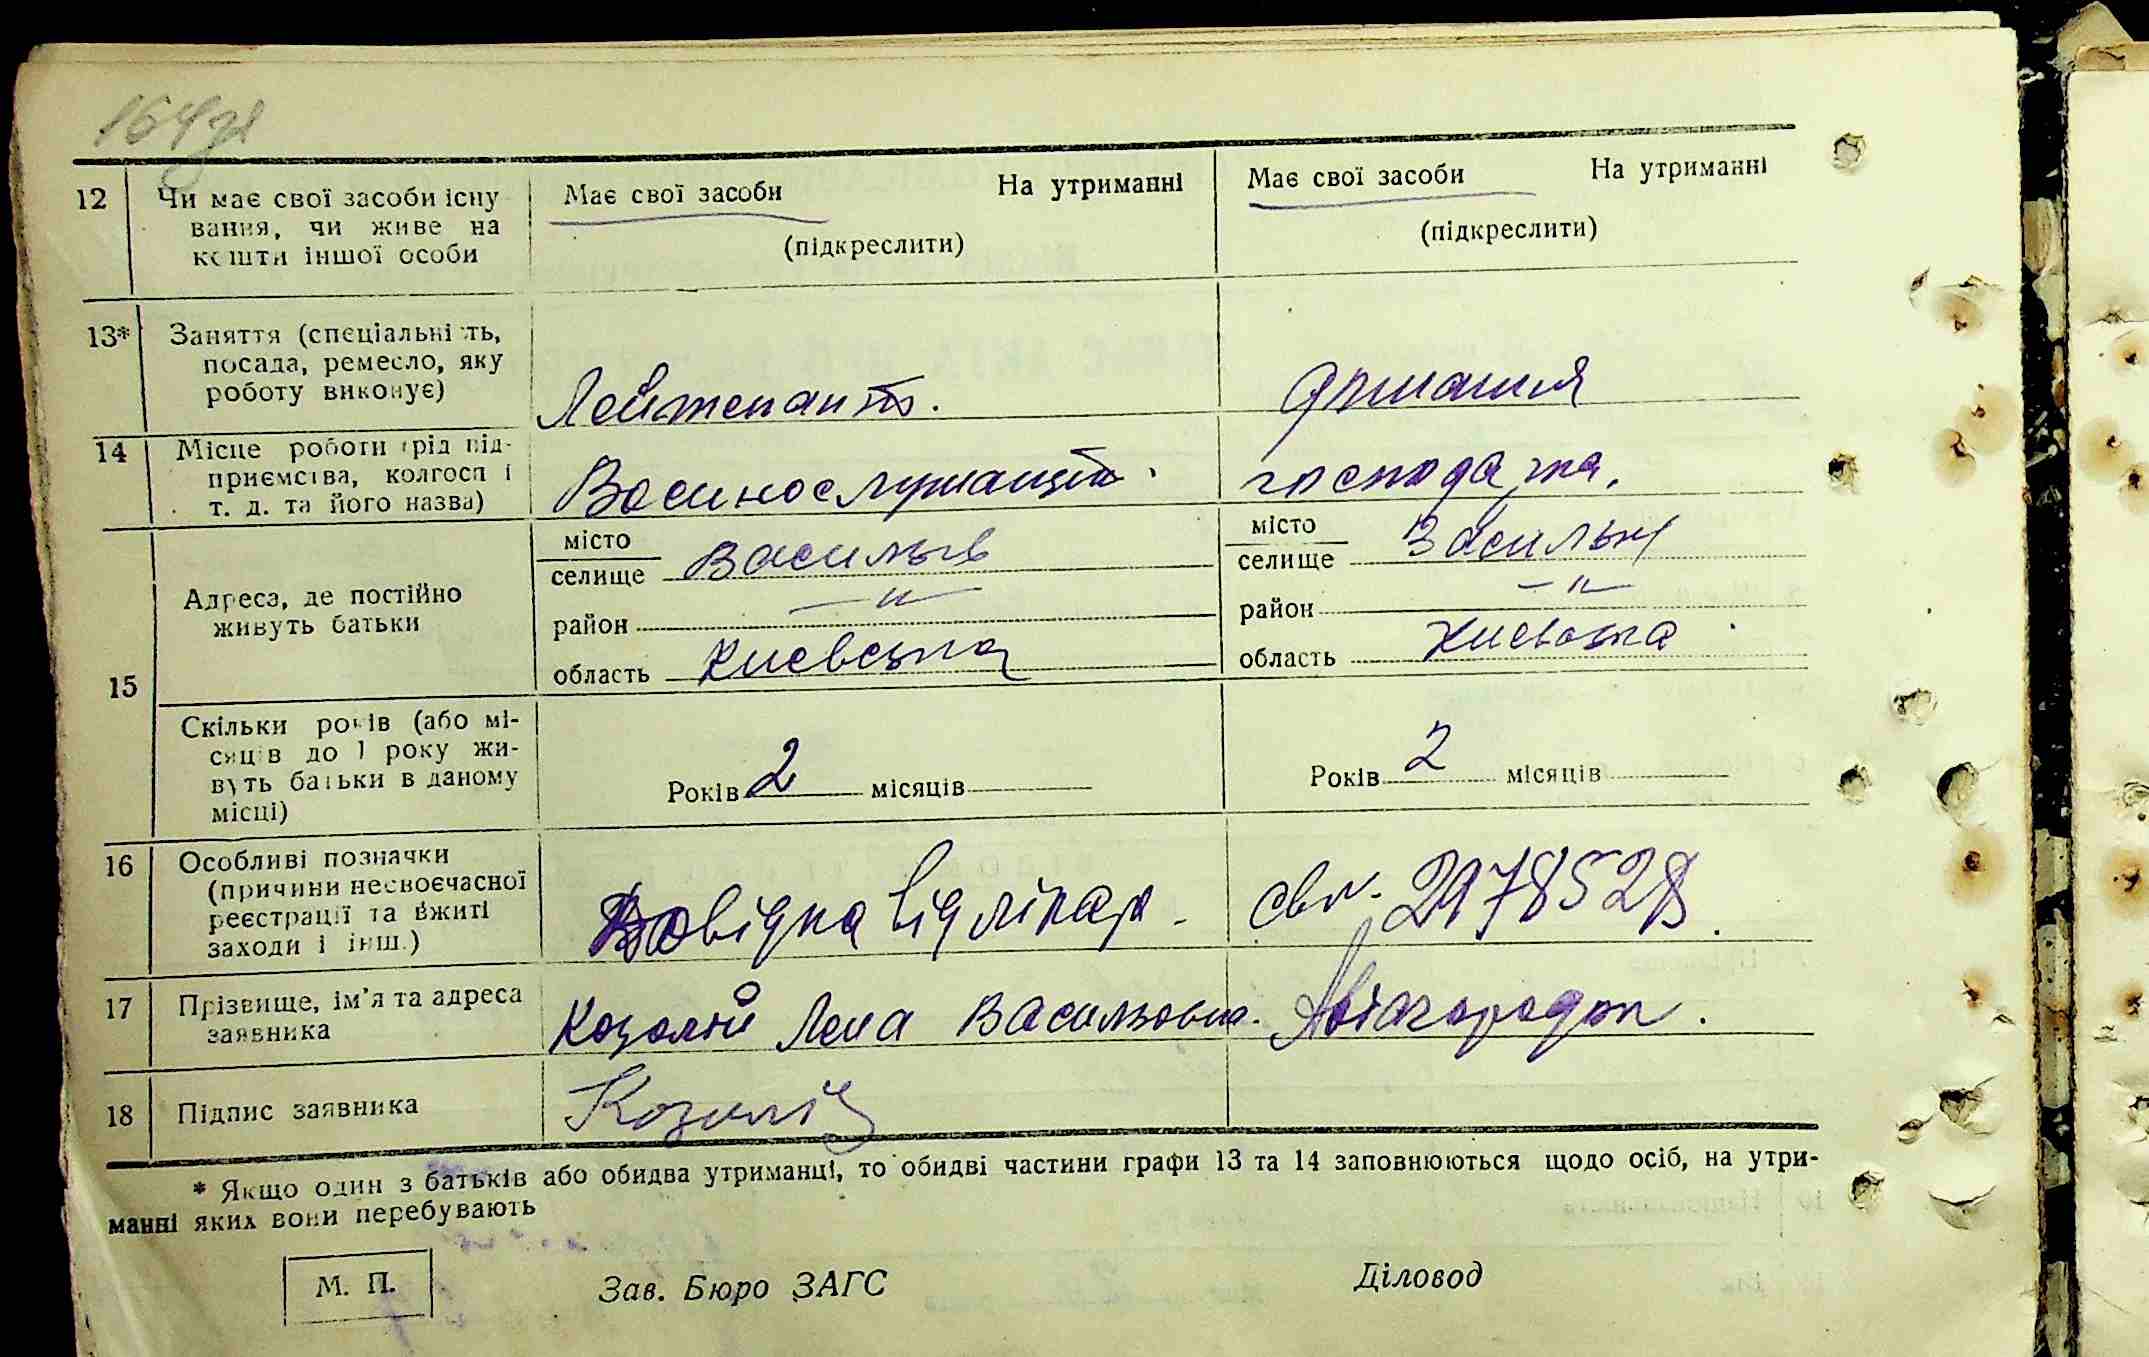 164
12 Чи має свої засоби існу Має свої засоби На утриманні Має свої засоби На утриманні
вання, чи живе на (підкреслити) (підкреслити)
кошти іншої особи
13* Заняття (спеціальність,
посада, ремесло, яку
роботу виконує) Лейтенант. домашня
14 Місце роботи (рід під-
приємства, колгосп і Военнослужащий. господарка.
т. д. та його назва)
15 Адреса, де постійно живуть батьки
місто
селище Васильків
район —"—
область Киевська
місто
селище Васильк
район —"—
область Киевська
Скільки років (або мі-
сяців до 1 року жи-
вуть батьки в даному Років 2 місяців Років 2 місяців
місці)
16 Особливі позначки
(причини несвоєчасної
реєстрації та вжиті Довідка від лікар. свід. 2978528.
заходи і інш.)
17 Прізвище, ім'я та адреса
заявника Козолій Лена Васильовна. Авіагородок.
18 Підпис заявника Козолій
* Якщо один з батьків або обидва утриманці, то обидві частини графи 13 та 14 заповнюються щодо осіб, на утри-
манні яких вони перебувають
М. П. Зав. Бюро ЗАГС Діловод